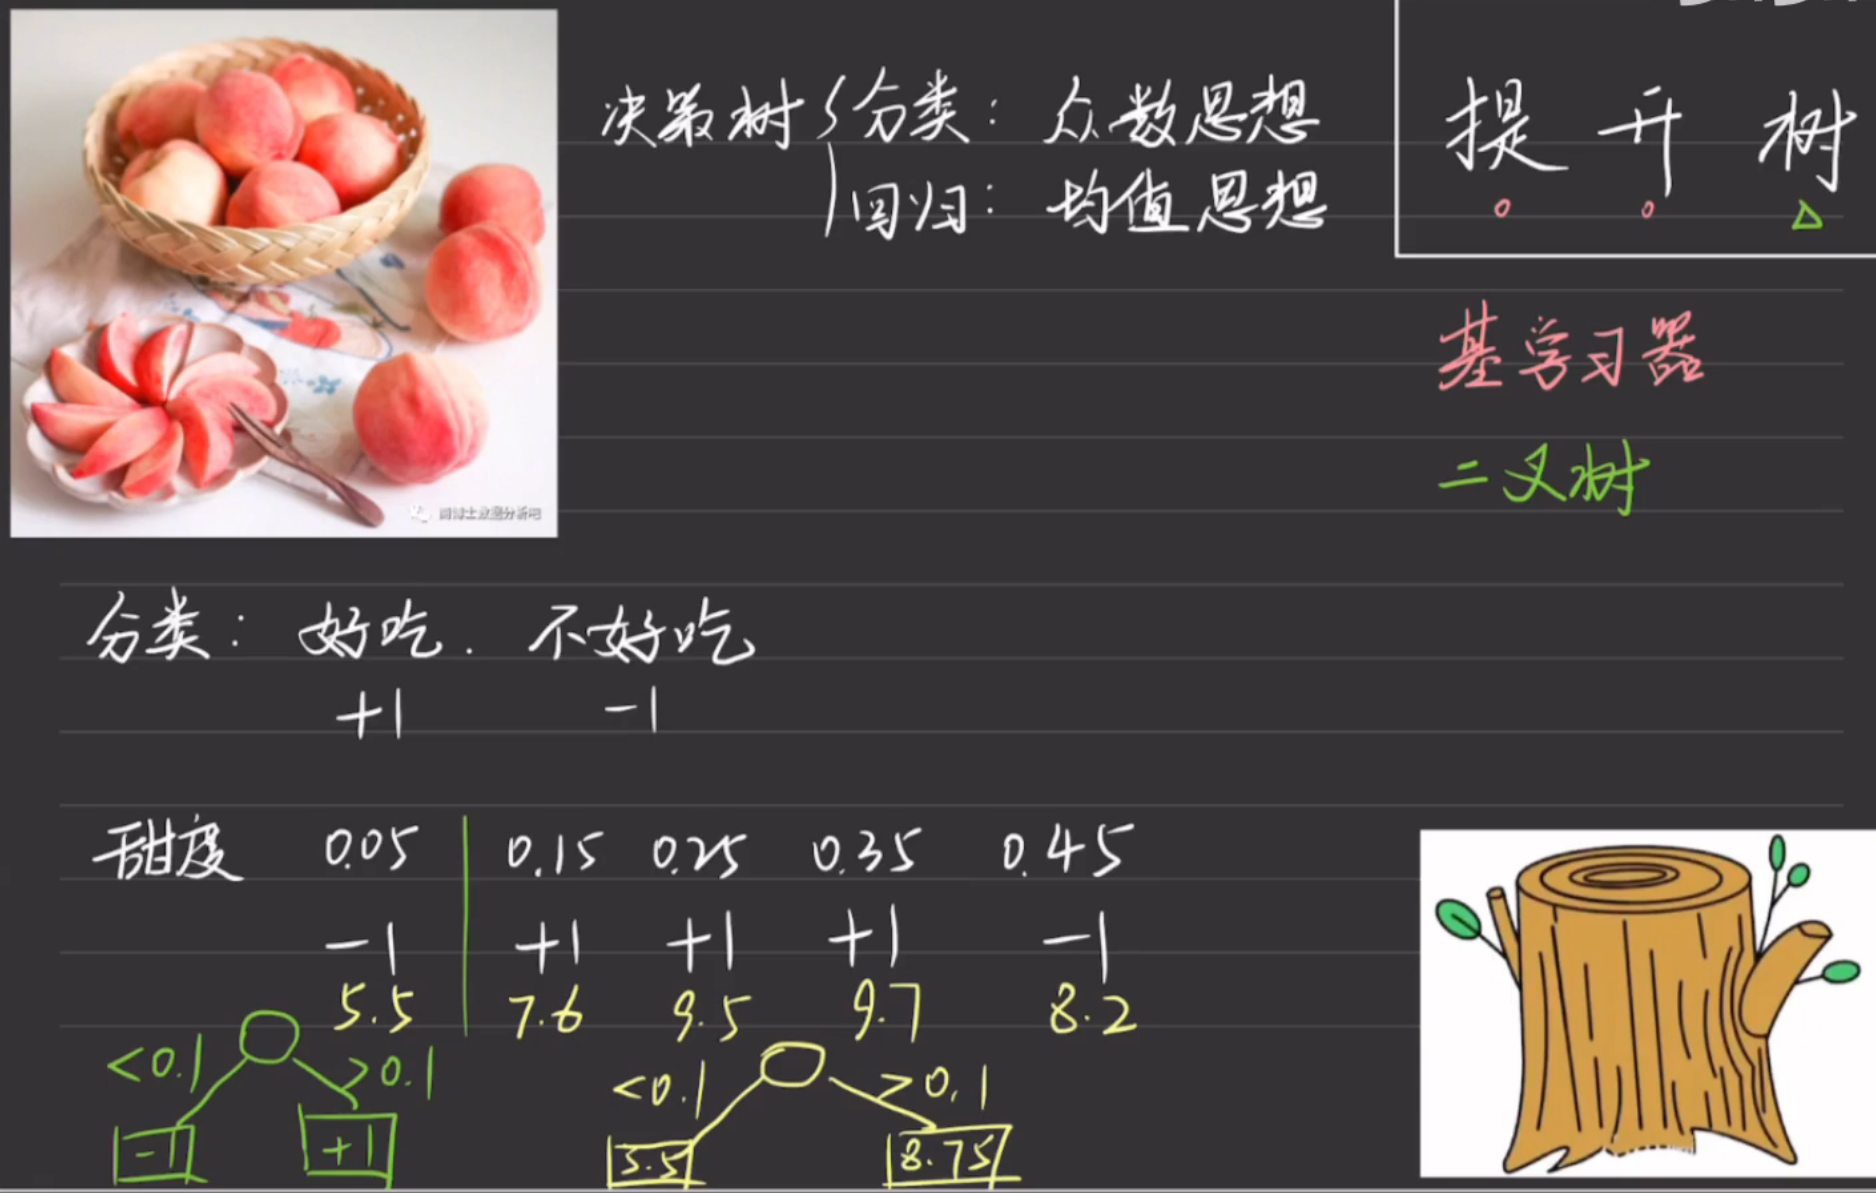 决策树 { 分类: 众数思想
回归: 均值思想
提升树
基学习器
二叉树
分类: 好吃. 不好吃
+1 -1
甜度 0.05 0.15 0.25 0.35 0.45
-1 +1 +1 +1 -1
5.5 7.6 9.5 9.7 8.2
<0.1 >0.1
-1 +1
<0.1 >0.1
5.5 8.75